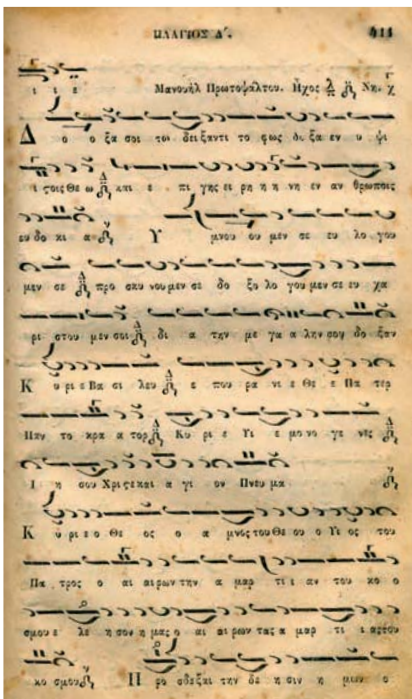 ΠΛΑΓΙΟΣ Δ΄. 411
ι ι ε Μανουὴλ Πρωτοψάλτου. Ἦχος Νη.
Δ ο ο ξα σοι τω δει ξαν τι το φως δο ξα εν υ ψι
ι τοις Θε ω και ε πι γης ει ρη η νη εν αν θρωποις
ευ δο κι α Υ μνου ου μεν σε ευ λο γου
μεν σε προ σκυ νου μεν σε δο ξο λο γου μεν σε ευ χα
ρι στου μεν σοι δι α την με γα α λην σου δο ξαν
Κ υ ρι ε Βα σι λευ ε που ρα νι ε Θε ε Πα τερ
Παν το κρα α τορ Κυ ρι ε Υι ε μο νο γε νες
Ι η σου Χρι ϛε και α γι ον Πνευ μα
Κ υ ρι ε ο Θε ος ο α μνος του Θε ου ο Υι ος του
Πα τρος ο αι αι ρων την α μαρ τι ι αν του κο ο
σμου ε λε η σον η μας ο αι αι ρων τας α μαρ τι ι ας του
κο σμου Π ρο σδε ξαι την δε η σιν η μων ο